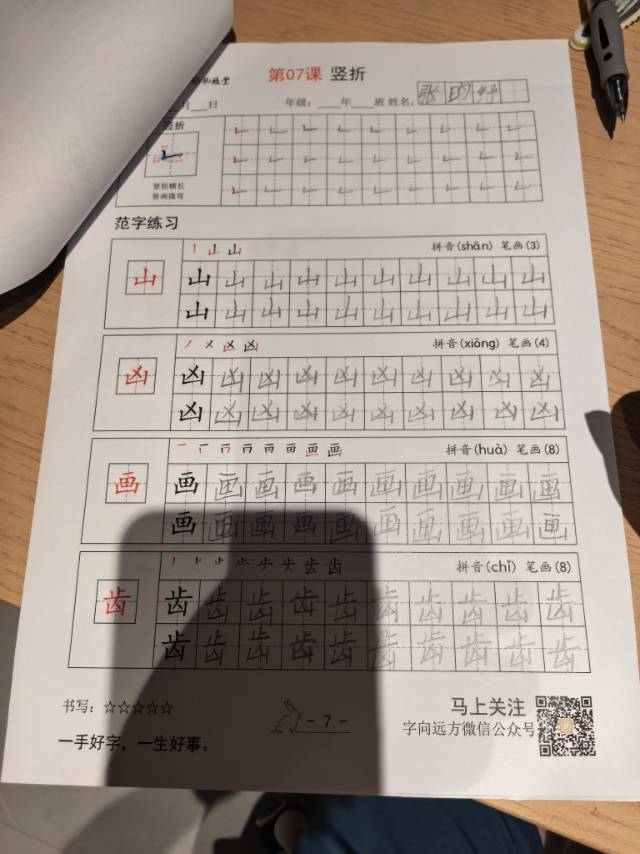 第07课 竖折
月__日 年级：____年____班 姓名：张昀妤
竖折
竖短横长
竖画微弯
范字练习
山 拼音(shān) 笔画(3)
山 山 山 山 山 山 山 山 山 山
山 山 山 山 山 山 山 山 山 山
凶 拼音(xiōng) 笔画(4)
凶 凶 凶 凶 凶 凶 凶 凶 凶 凶
凶 凶 凶 凶 凶 凶 凶 凶 凶 凶
画 拼音(huà) 笔画(8)
画 画 画 画 画 画 画 画 画 画
画 画 画 画 画 画 画 画 画 画
齿 拼音(chǐ) 笔画(8)
齿 齿 齿 齿 齿 齿 齿 齿 齿 齿
齿 齿 齿 齿 齿 齿 齿 齿 齿 齿
书写：☆☆☆☆☆
一手好字，一生好事。
- 7 -
马上关注
字向远方微信公众号